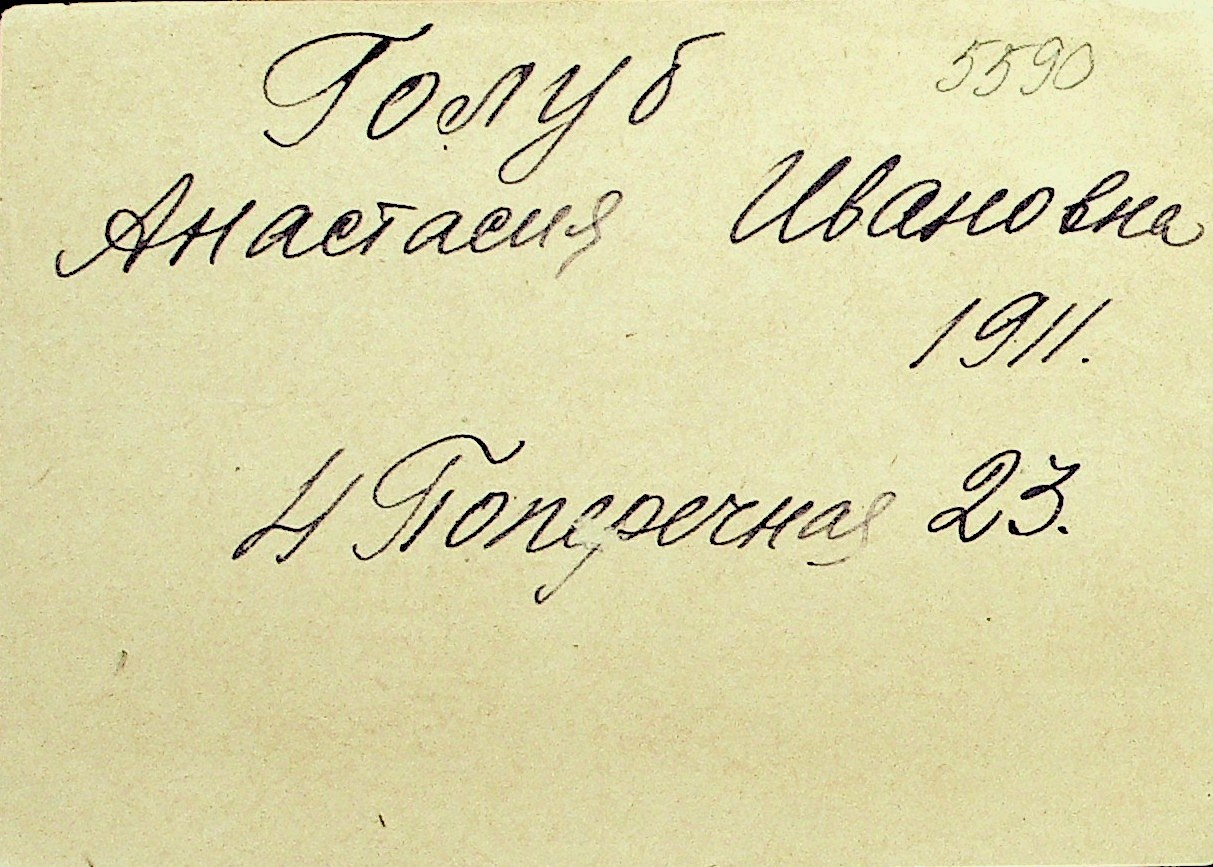 5590
Голуб
Анастасия Ивановна
1911.
4 Поперечная 23.